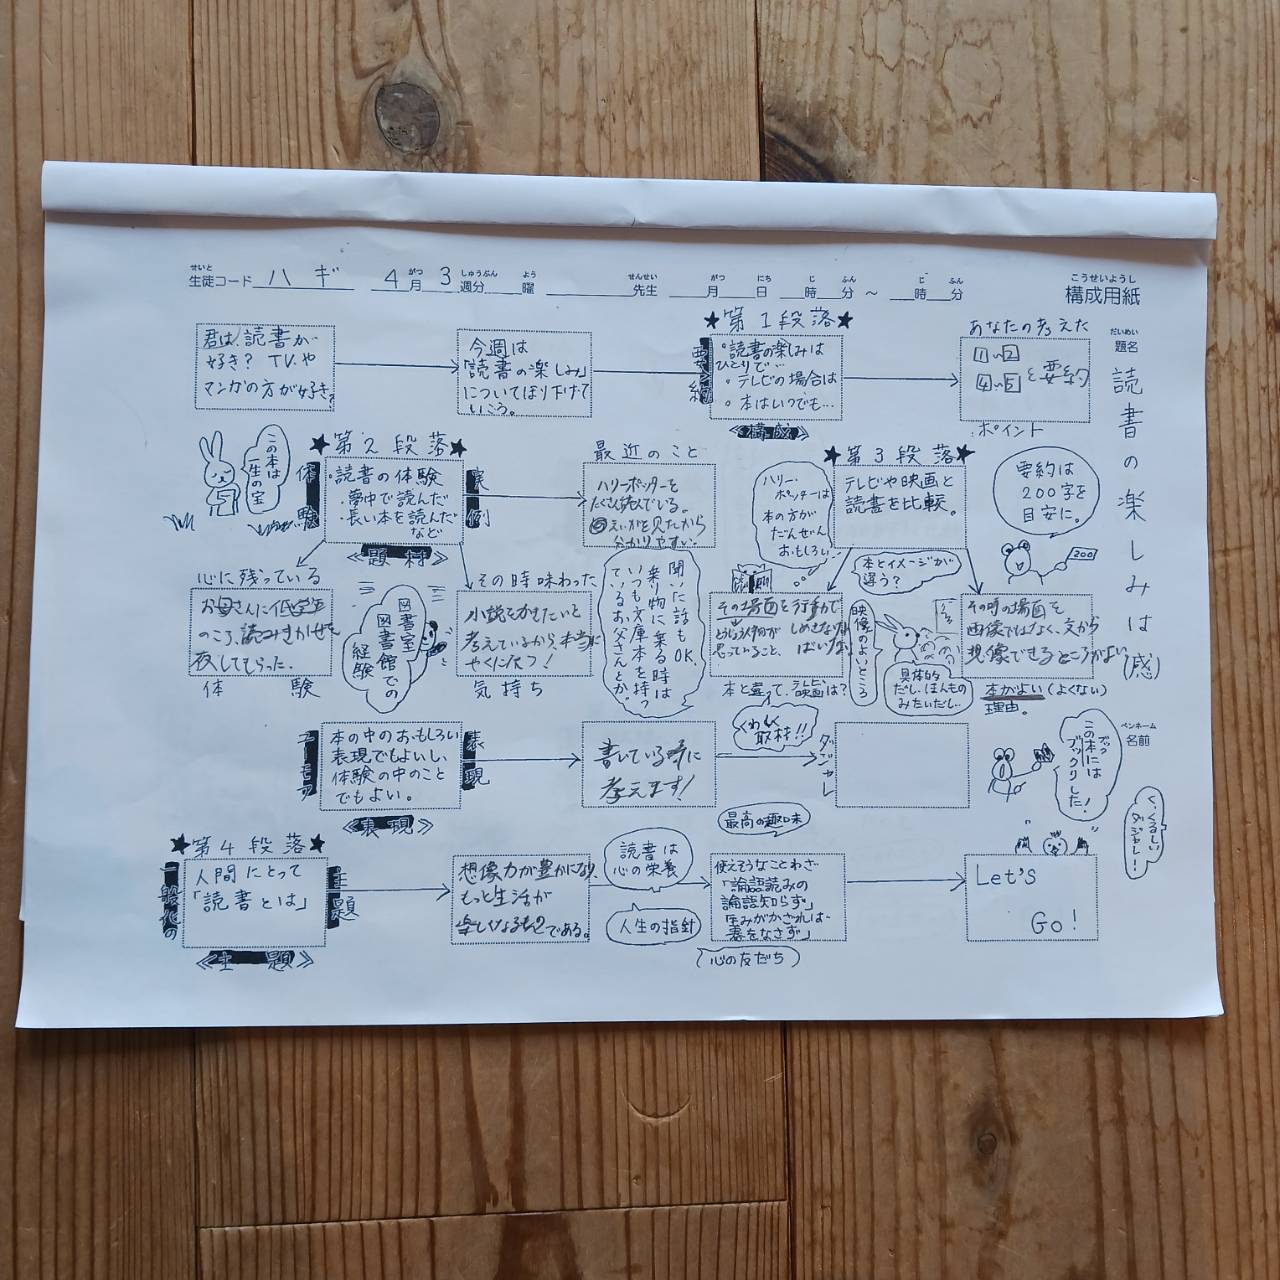 生徒コード ハギ 4月3週分 曜 先生 月 日 時 分 ～ 時 分
構成用紙
題名
読書の楽しみは(感)
ペンネーム
名前
君は、読書が
好き? TVや
マンガの方が好き?
今週は
「読書の楽しみ」
についてほり下げて
いこう。
★第1段落★
要約
・読書の楽しみは
ひとりで…
・テレビの場合は
・本はいつでも…
≪構成≫
あなたの考えた
1〜2
4〜5
と要約
ポイント
要約は
200字を
目安に。
200
この本は
一生の宝
★第2段落★
体験
実例
・読書の体験
・夢中で読んだ
・長い本を読んだ
など
≪題材≫
最近のこと
ハリーポッターを
たくさん読んでいる。
えいがを見たから
分かりやすい。
★第3段落★
テレビや映画と
読書を比較。
ハリー
ポッターは
本の方が
だんぜん
おもしろい
心に残っている
お母さんに低学年
のころ、読みきかせを
夜してもらった。
体験
図書室
図書館での
経験
その時味わった
小説をかきたいと
考えているから、本当に
やくにたつ!
気持ち
聞いた話も
OK。
乗り物に乗る時は
いつも文庫本を持っ
ているお父さんとか。
本とイメージが
違う?
その場面を行動で
しめさないと
思っていること、
本と違って、テレビ・映画は?
映像のよいところ
具体的
だし、ほんもの
みたいだし…
その時の場面を
画像ではなく、文から
想像できるところがよい
本がよい(よくない)
理由。
ユーモア
表現
本の中のおもしろい
表現でもよいし、
体験の中のこと
でもよい。
≪表現≫
書いている時に
考えます!
くわしく
取材!!
ダジャレ
この本には
ブックリした!
くくるしい
ダジャレ…!
★第4段落★
一般化の
主題
人間にとって
「読書とは」
≪主題≫
もっと生活が
である。
読書は
心の栄養
人生の指針
最高の趣味
使えそうなことわざ
「論語読みの
論語知らず」
心の友だち
Let's
Go!